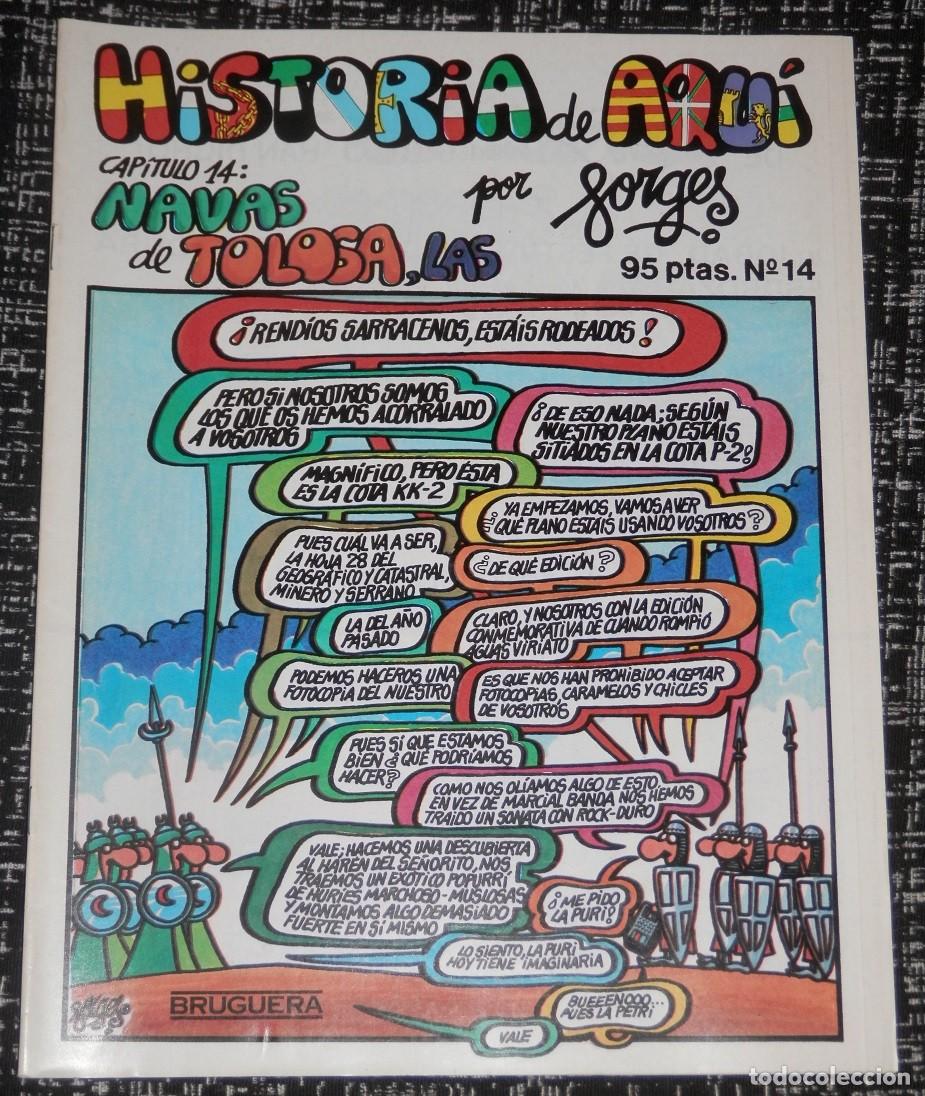 HiSTORiA de AQUí
CAPíTULO 14:
NAVAS
de TOLOSA, LAS
por Forges
95 ptas. Nº 14
¡RENDÍOS SARRACENOS, ESTÁIS RODEADOS!
PERO SI NOSOTROS SOMOS
LOS QUE OS HEMOS ACORRALADO
A VOSOTROS
¡DE ESO NADA: SEGÚN
NUESTRO PLANO ESTÁIS
SITIADOS EN LA COTA P-2!
MAGNÍFICO, PERO ÉSTA
ES LA COTA KK-2
YA EMPEZAMOS, VAMOS A VER
¿QUE PLANO ESTAÍS USANDO VOSOTROS?
PUES CUÁL VA A SER,
LA HOJA 28 DEL
GEOGRÁFICO Y CATASTRAL,
MINERO Y SERRANO
¿DE QUÉ EDICIÓN?
LA DEL AÑO
PASADO
CLARO, Y NOSOTROS CON LA EDICIÓN
CONMEMORATIVA DE CUANDO ROMPIÓ
AGUAS VIRIATO
PODEMOS HACEROS UNA
FOTOCOPIA DEL NUESTRO
ES QUE NOS HAN PROHIBIDO ACEPTAR
FOTOCOPIAS, CARAMELOS Y CHICLES
DE VOSOTROS
PUES SÍ QUE ESTAMOS
BIEN ¿QUÉ PODRÍAMOS
HACER?
COMO NOS OLÍAMOS ALGO DE ESTO
EN VEZ DE MARCIAL BANDA NOS HEMOS
TRAÍDO UN SONATA CON ROCK-DURO
VALE: HACEMOS UNA DESCUBIERTA
AL HARÉN DEL SEÑORITO, NOS
TRAEMOS UN EXÓTICO POPURRÍ
DE HURÍES MARCHOSO-MUSLOSAS
Y MONTAMOS ALGO DEMASIADO
FUERTE EN SÍ MISMO
¡ME PIDO
LA PURI!
LO SIENTO, LA PURI
HOY TIENE IMAGINARIA
BUEEENOOO...
PUES LA PETRI
VALE
forges
BRUGUERA
todocoleccion
todocoleccion.net